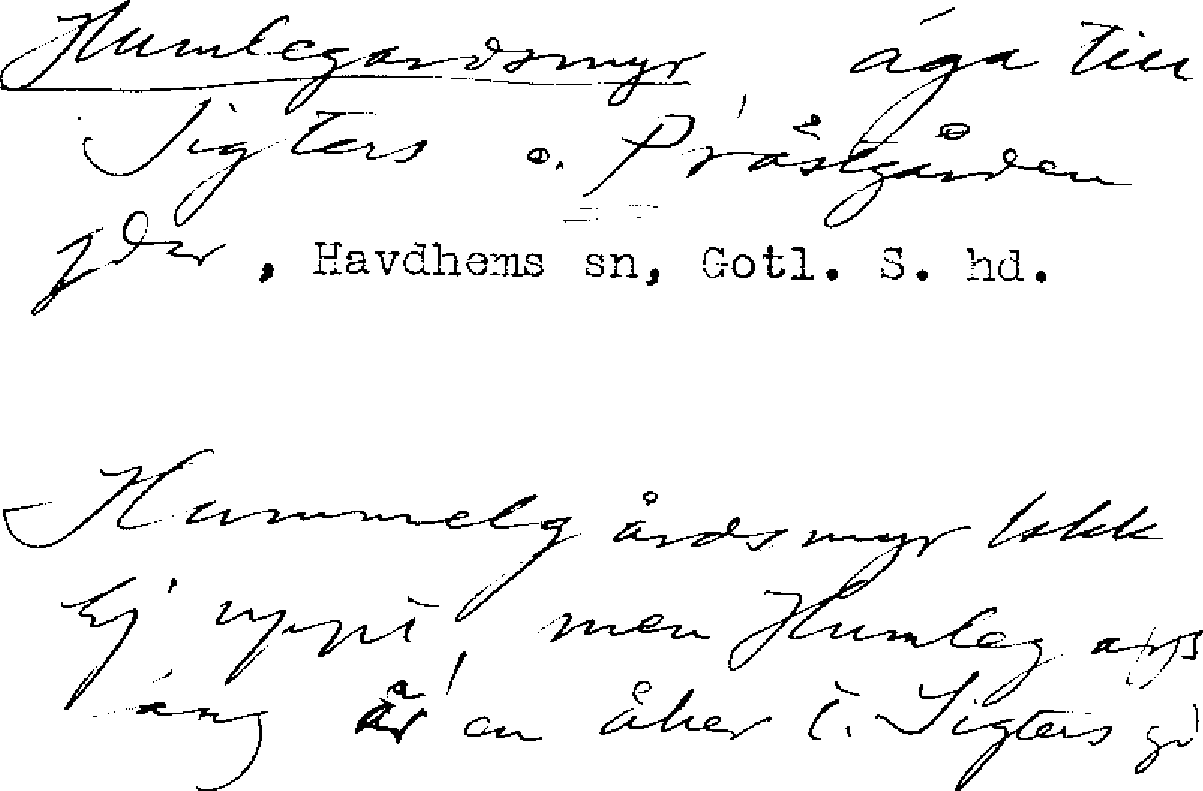 Humlegardsmyr äga till
Sigters o. Prästgården
gdar, Havdhems sn, Gotl. S. hd.
Hummelgårdsmyr kkk
Ej uppt, men Humleg
äng är en åker i. Sigters gd